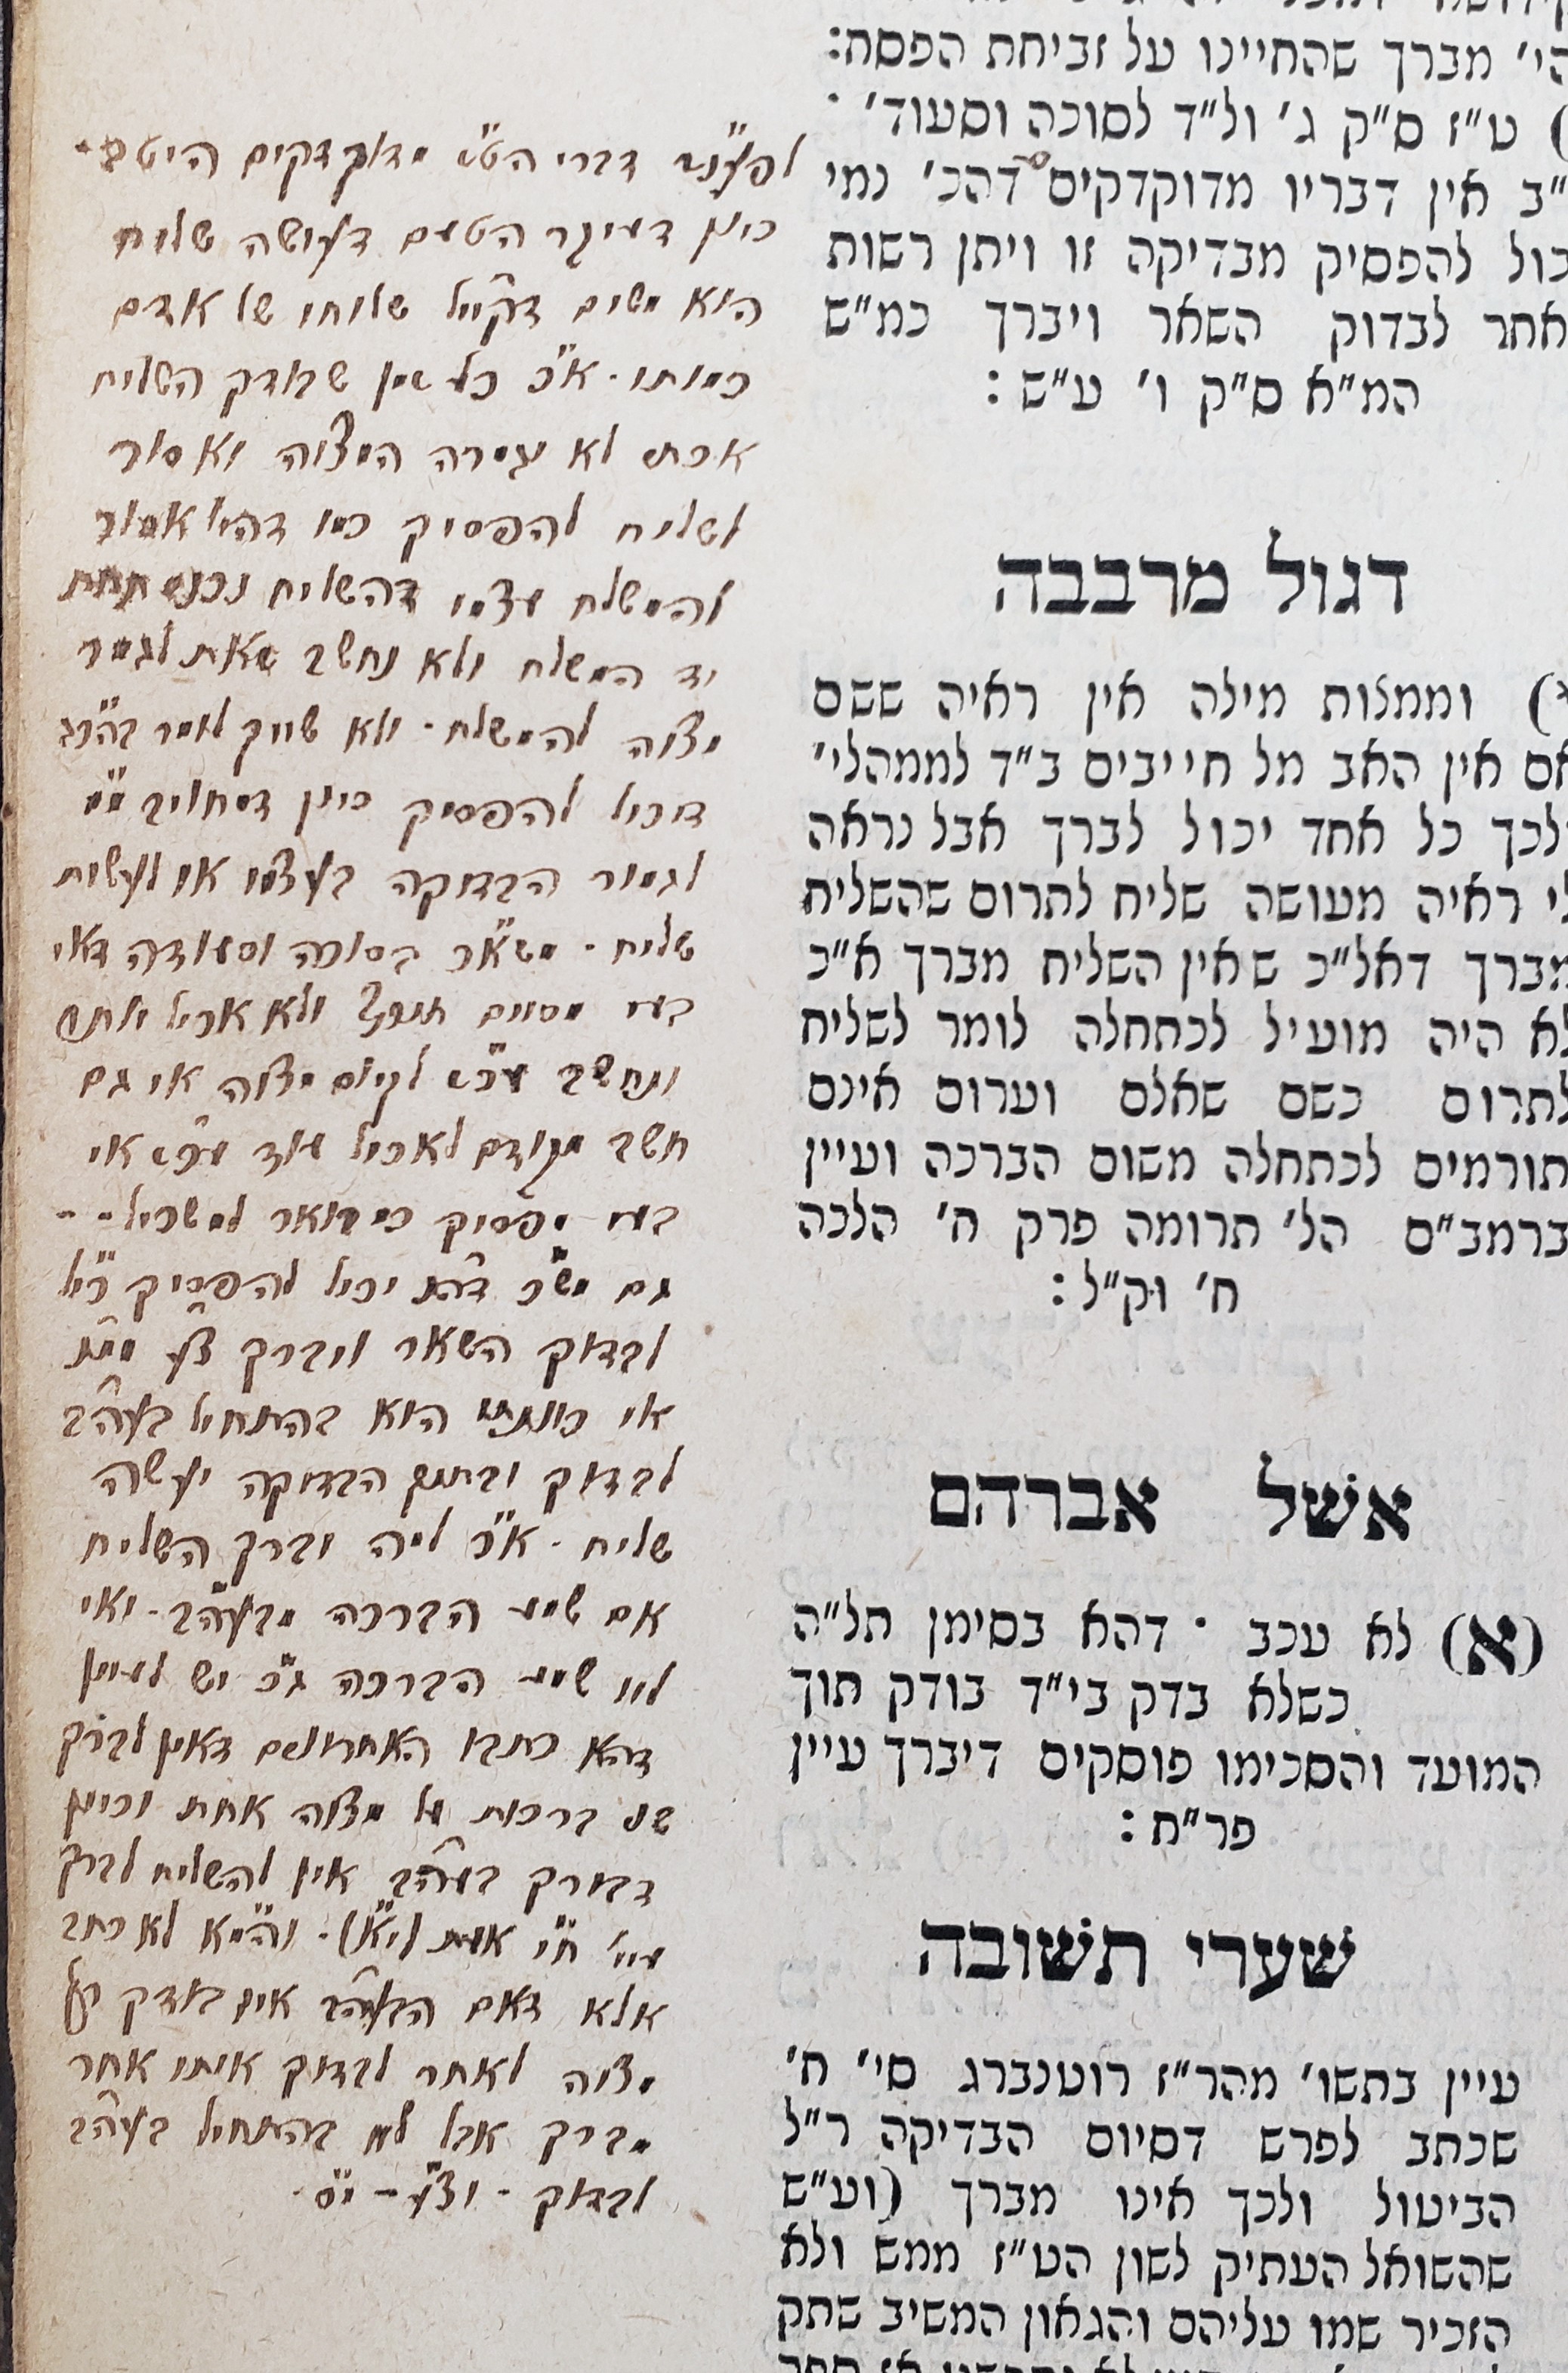 הי׳ מברך שהחיינו על זביחת הפסח:
) ט״ז ס״ק ג׳ ול״ד לסוכה וסעוד׳ ·
״ב אין דבריו מדוקדקים דהכ׳ נמי
כול להפסיק מבדיקה זו ויתן רשות
אחר לבדוק השאר ויברך כמ״ש
המ״א ס״ק ו׳ ע״ש :
דגול מרבבה
) וממצות מילה אין ראיה ששם
אם אין האב מל חייבים ב״ד לממהלי׳
לכך כל אחד יכול לברך אבל נראה
לי ראיה מעושה שליח לתרום שהשליח
מברך דאל״כ שאין השליח מברך א״כ
לא היה מועיל לכתחלה לומר לשליח
לתרום כשם שאלם וערום אינם
תורמים לכתחלה משום הברכה ועיין
ברמב״ם הל׳ תרומה פרק ח׳ הלכה
ח׳ וק״ל :
אשל אברהם
(א) לא עכב · דהא בסימן תל״ה
כשלא בדק בי״ד בודק תוך
המועד והסכימו פוסקים דיברך עיין
פר״ח :
שערי תשובה
עיין בתשו׳ מהר״ז רוטנברג סי׳ ח׳
שכתב לפרש דסיום הבדיקה ר״ל
הביטול ולכך אינו מברך (וע״ש
שהשואל העתיק לשון הט״ז ממש ולא
הזכיר שמו עליהם והגאון המשיב שתק
לפענ״ד דברי הט״ז מדוקדקים היטב -
כיון דעיקר הטעם דעושה שליח
הוא משום דקיי״ל שלוחו של אדם
כמותו . א״כ כל זמן שבודק השליח
אכתי לא נגמרה המצוה ואסור
לשליח להפסיק כמו דהי׳ אסור
להמשלח עצמו דהשליח נכנס תחת
יד המשלח ולא נחשב זאת לגמר
מצוה להמשלח . ולא שייך לומר
דיכול להפסיק כיון דמחויב
לגמור הבדיקה בעצמו או לעשות
שליח . משא״כ בסוכה וסעודה דאי
בעי מסיים תיכף ולא אכיל יותר
ונחשב עכ״ז לקיום מצוה או גם
חשב מקודם לאכול עוד עכ״ז אי
בעי מפסיק כמבואר למשכיל - -
גם מש״כ יכול להפסיק
לבדוק השאר ויברך צ״ע
אי כוונתו הוא בהתחיל בעה״ב
לבדוק ובתוך הבדיקה יעשה
שליח . א״כ למה יברך השליח
אם שמע הברכה מבעה״ב . ואי
לא שמע הברכה ג״כ יש לעיין
דהא כתבו האחרונים דאין לברך
שני ברכות על מצוה אחת וכיון
דבירך בעה״ב אין להשליח לברך
עיי׳ ח״י אות (י״א) . והמ״א לא כתב
אלא דאם הבעה״ב אינו בודק רק
מצוה לאחר לבדוק אותו אחר
מברך אבל לא בהתחיל בעה״ב
לבדוק . וצ״ע -